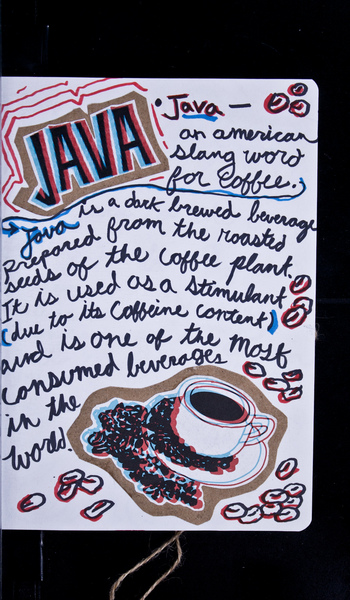 JAVA
• Java —
an american
slang word
for coffee.
Java is a dark brewed beverage
prepared from the roasted
seeds of the coffee plant.
It is used as a stimulant
(due to its Caffeine content)
and is one of the most
consumed beverages
in the
World.